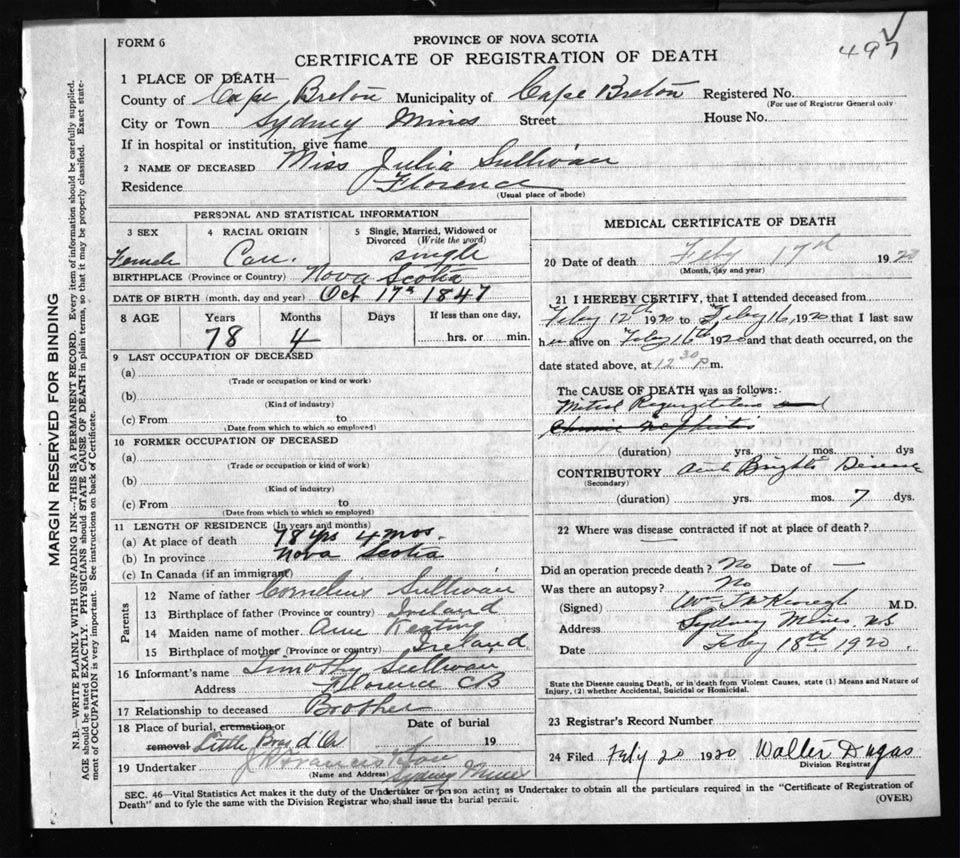 FORM 6
PROVINCE OF NOVA SCOTIA
CERTIFICATE OF REGISTRATION OF DEATH
497
1 PLACE OF DEATH—
County of Cape Breton Municipality of Cape Breton Registered No.
(For use of Registrar General only
City or Town Sydney Mines Street House No.
If in hospital or institution, give name
2 NAME OF DECEASED Miss Julia Sullivan
Residence Florence
(Usual place of abode)
MARGIN RESERVED FOR BINDING
N.B.—WRITE PLAINLY WITH UNFADING INK—THIS IS A PERMANENT RECORD. Every item of information should be carefully supplied.
AGE should be stated EXACTLY. PHYSICIANS should STATE CAUSE OF DEATH in plain terms, so that it may be properly classified. Exact state-
ment of OCCUPATION is very important. See instructions on back of Certificate.
PERSONAL AND STATISTICAL INFORMATION
3 SEX 4 RACIAL ORIGIN 5 Single, Married, Widowed or
Divorced (Write the word)
Female Cau. single
BIRTHPLACE (Province or Country) Nova Scotia
DATE OF BIRTH (month, day and year) Oct 17th 1847
8 AGE Years Months Days If less than one day,
78 4 hrs. or min.
9 LAST OCCUPATION OF DECEASED
(a)
(Trade or occupation or kind or work)
(b)
(Kind of industry)
(c) From to
(Date from which to which so employed)
10 FORMER OCCUPATION OF DECEASED
(a)
(Trade or occupation or kind of work)
(b)
(Kind of industry)
(c) From to
(Date from which to which so employed)
11 LENGTH OF RESIDENCE (In years and months)
(a) At place of death 78 yrs 4 mos.
(b) In province Nova Scotia
(c) In Canada (if an immigrant)
Parents
12 Name of father Cornelius Sullivan
13 Birthplace of father (Province or country) Ireland
14 Maiden name of mother Ann Keating
15 Birthplace of mother (Province or country) Ireland
16 Informant's name Timothy Sullivan
Address Florence CB
17 Relationship to deceased Brother
18 Place of burial, cremation or Date of burial
removal Little Bras d'Or 19
19 Undertaker J Francis & Son
(Name and Address) Sydney Mines
MEDICAL CERTIFICATE OF DEATH
20 Date of death Feby 17th 1920
(Month, day and year)
21 I HEREBY CERTIFY, that I attended deceased from
Feby 12th 1920 to Feby 16, 1920 that I last saw
her alive on Feby 16th 1920 and that death occurred, on the
date stated above, at 12 30 P m.
The CAUSE OF DEATH was as follows:-
Mitral Regurgitation and
Chronic Nephritis
(duration) yrs. mos. dys
CONTRIBUTORY Acute Bright's Disease
(Secondary)
(duration) yrs. mos. 7 dys.
22 Where was disease contracted if not at place of death?
Did an operation precede death? No Date of —
Was there an autopsy? No
(Signed) Wm J McKeough M.D.
Address Sydney Mines, NS
Date Feby 18th 1920.
State the Disease causing Death, or in death from Violent Causes, state (1) Means and Nature of
Injury, (2) whether Accidental, Suicidal or Homicidal.
23 Registrar's Record Number
24 Filed Feby 20 1920 Walter Dugas
Division Registrar
SEC. 46—Vital Statistics Act makes it the duty of the Undertaker or person acting as Undertaker to obtain all the particulars required in the "Certificate of Registration of
Death" and to fyle the same with the Division Registrar who shall issue the burial permit. (OVER)